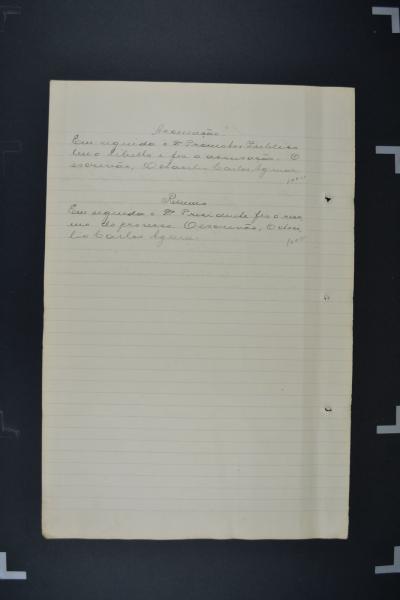 Accusação
Em seguida o Dr Promotor Publico
leu o libello e fez a accusação. O
escrivão, Octavio Carlos Aguiar
Resumo
Em seguida o Dr Presidente fez o resu
mo do processo. O escrivão, Octavi
o Carlos Aguiar